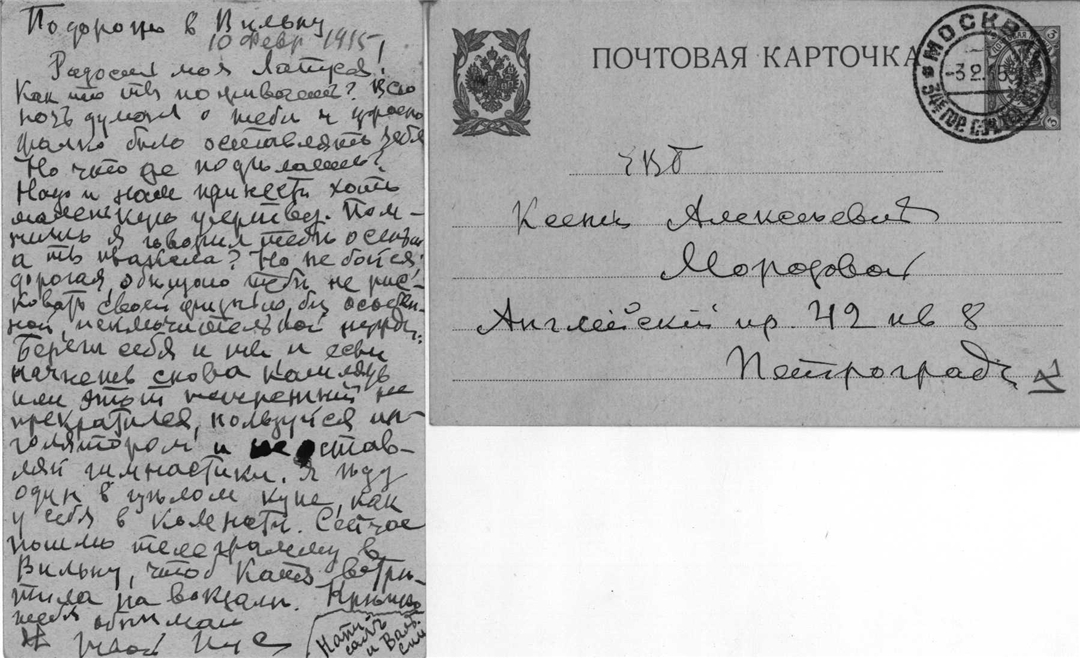 По дороге в Вильну
10 Февр 1915
Радость моя Лапуся!
Как то ты поживаешь? Всю
ночь думал о тебе и ужасно
жалко было оставлять тебя
Но что же поделаешь?
Надо и нам принести хоть
маленькую жертву. Пом-
нишь я говорил тебе осенью
а ты плакала? Но не бойся,
дорогая, обещаю тебе не рис-
ковать своей жизнью, без особен-
ной, исключительной нужды.
Береги себя и ты и если
начнешь снова кашлять
или этот теперешний не
прекратился, пользуйся ин-
голятором и не остав-
ляй гимнастики. Я еду
один в целом купе, как
у себя в комнате. Сейчас
пошлю телеграмму в
Вильну, чтоб Катя встре-
тила на вокзале. Крепко
тебя обнимаю
Твой
Напи
сать
и
ПОЧТОВАЯ КАРТОЧКА
МОСКВА
-3 2 15
3
3
ЕВБ
Ксении Алексѣевнѣ
Мородовой
Английскій пр. 42 кв 8
Петроградъ